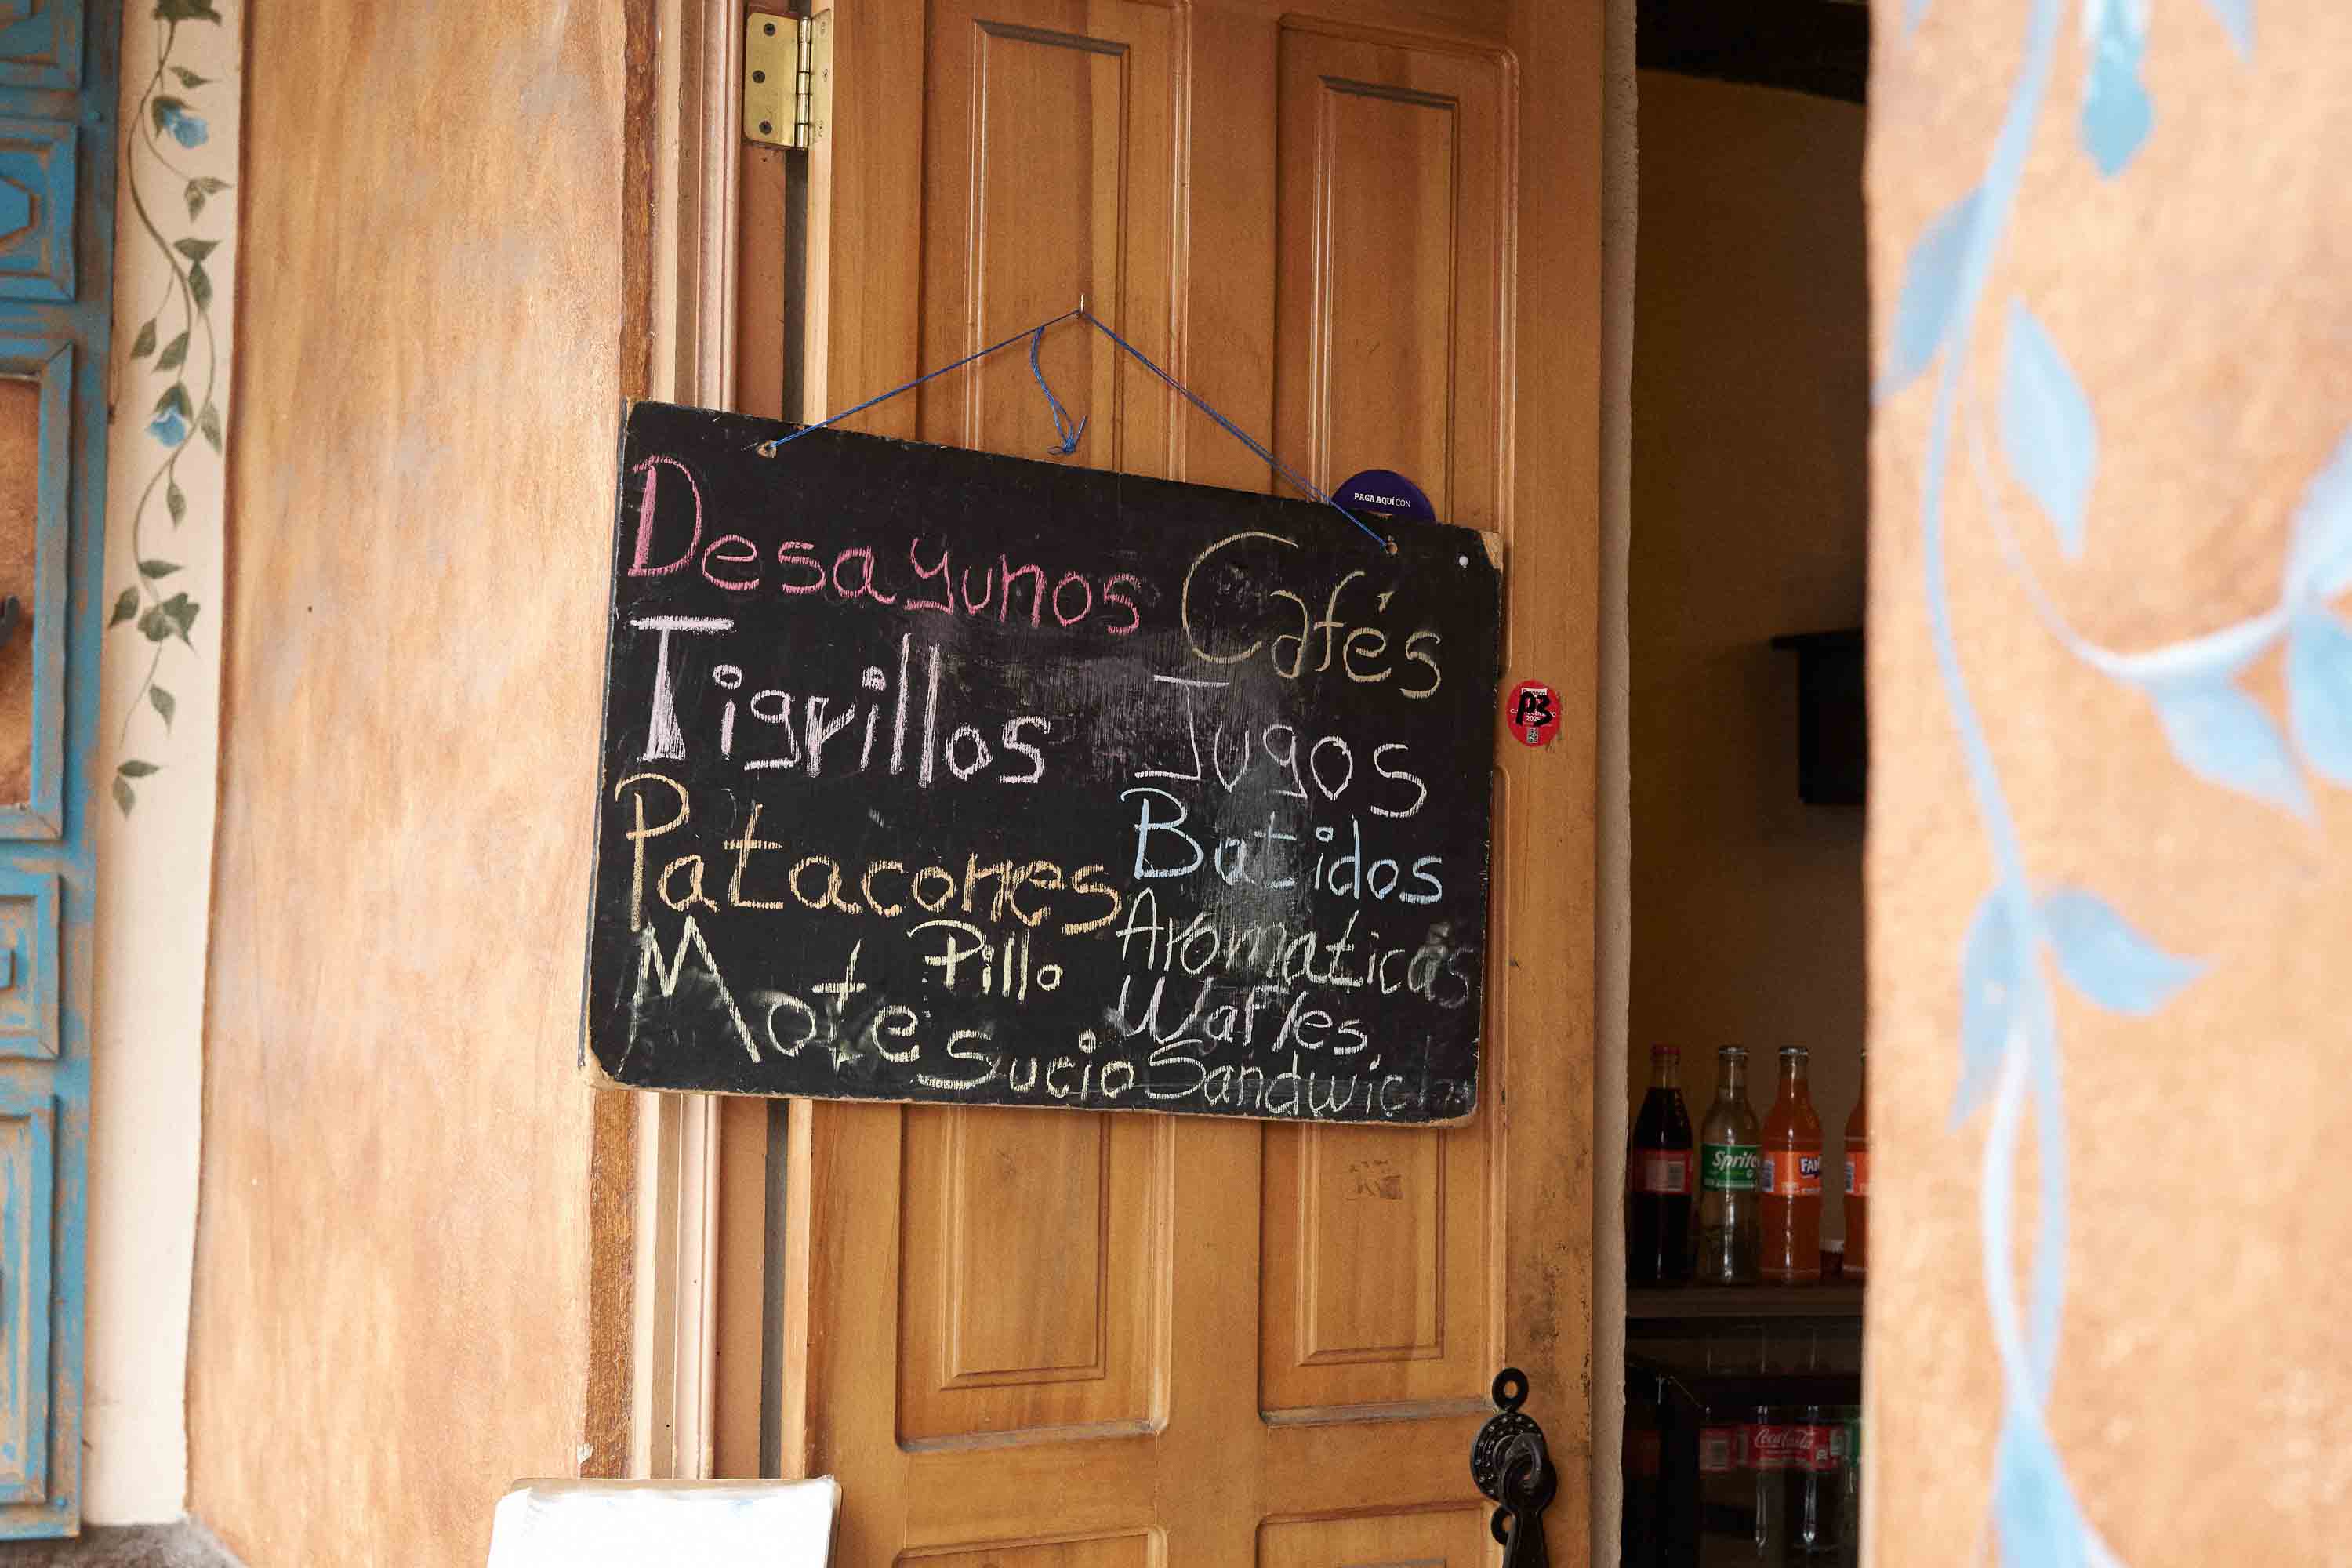 Desayunos
Tigrillos
Patacones
Mote Pillo
Sucio
Cafés
Jugos
Batidos
Aromaticas
Wafles
Sandwich
PAGA AQUÍ CON
P3
Sprite
FAN
Coca-Cola